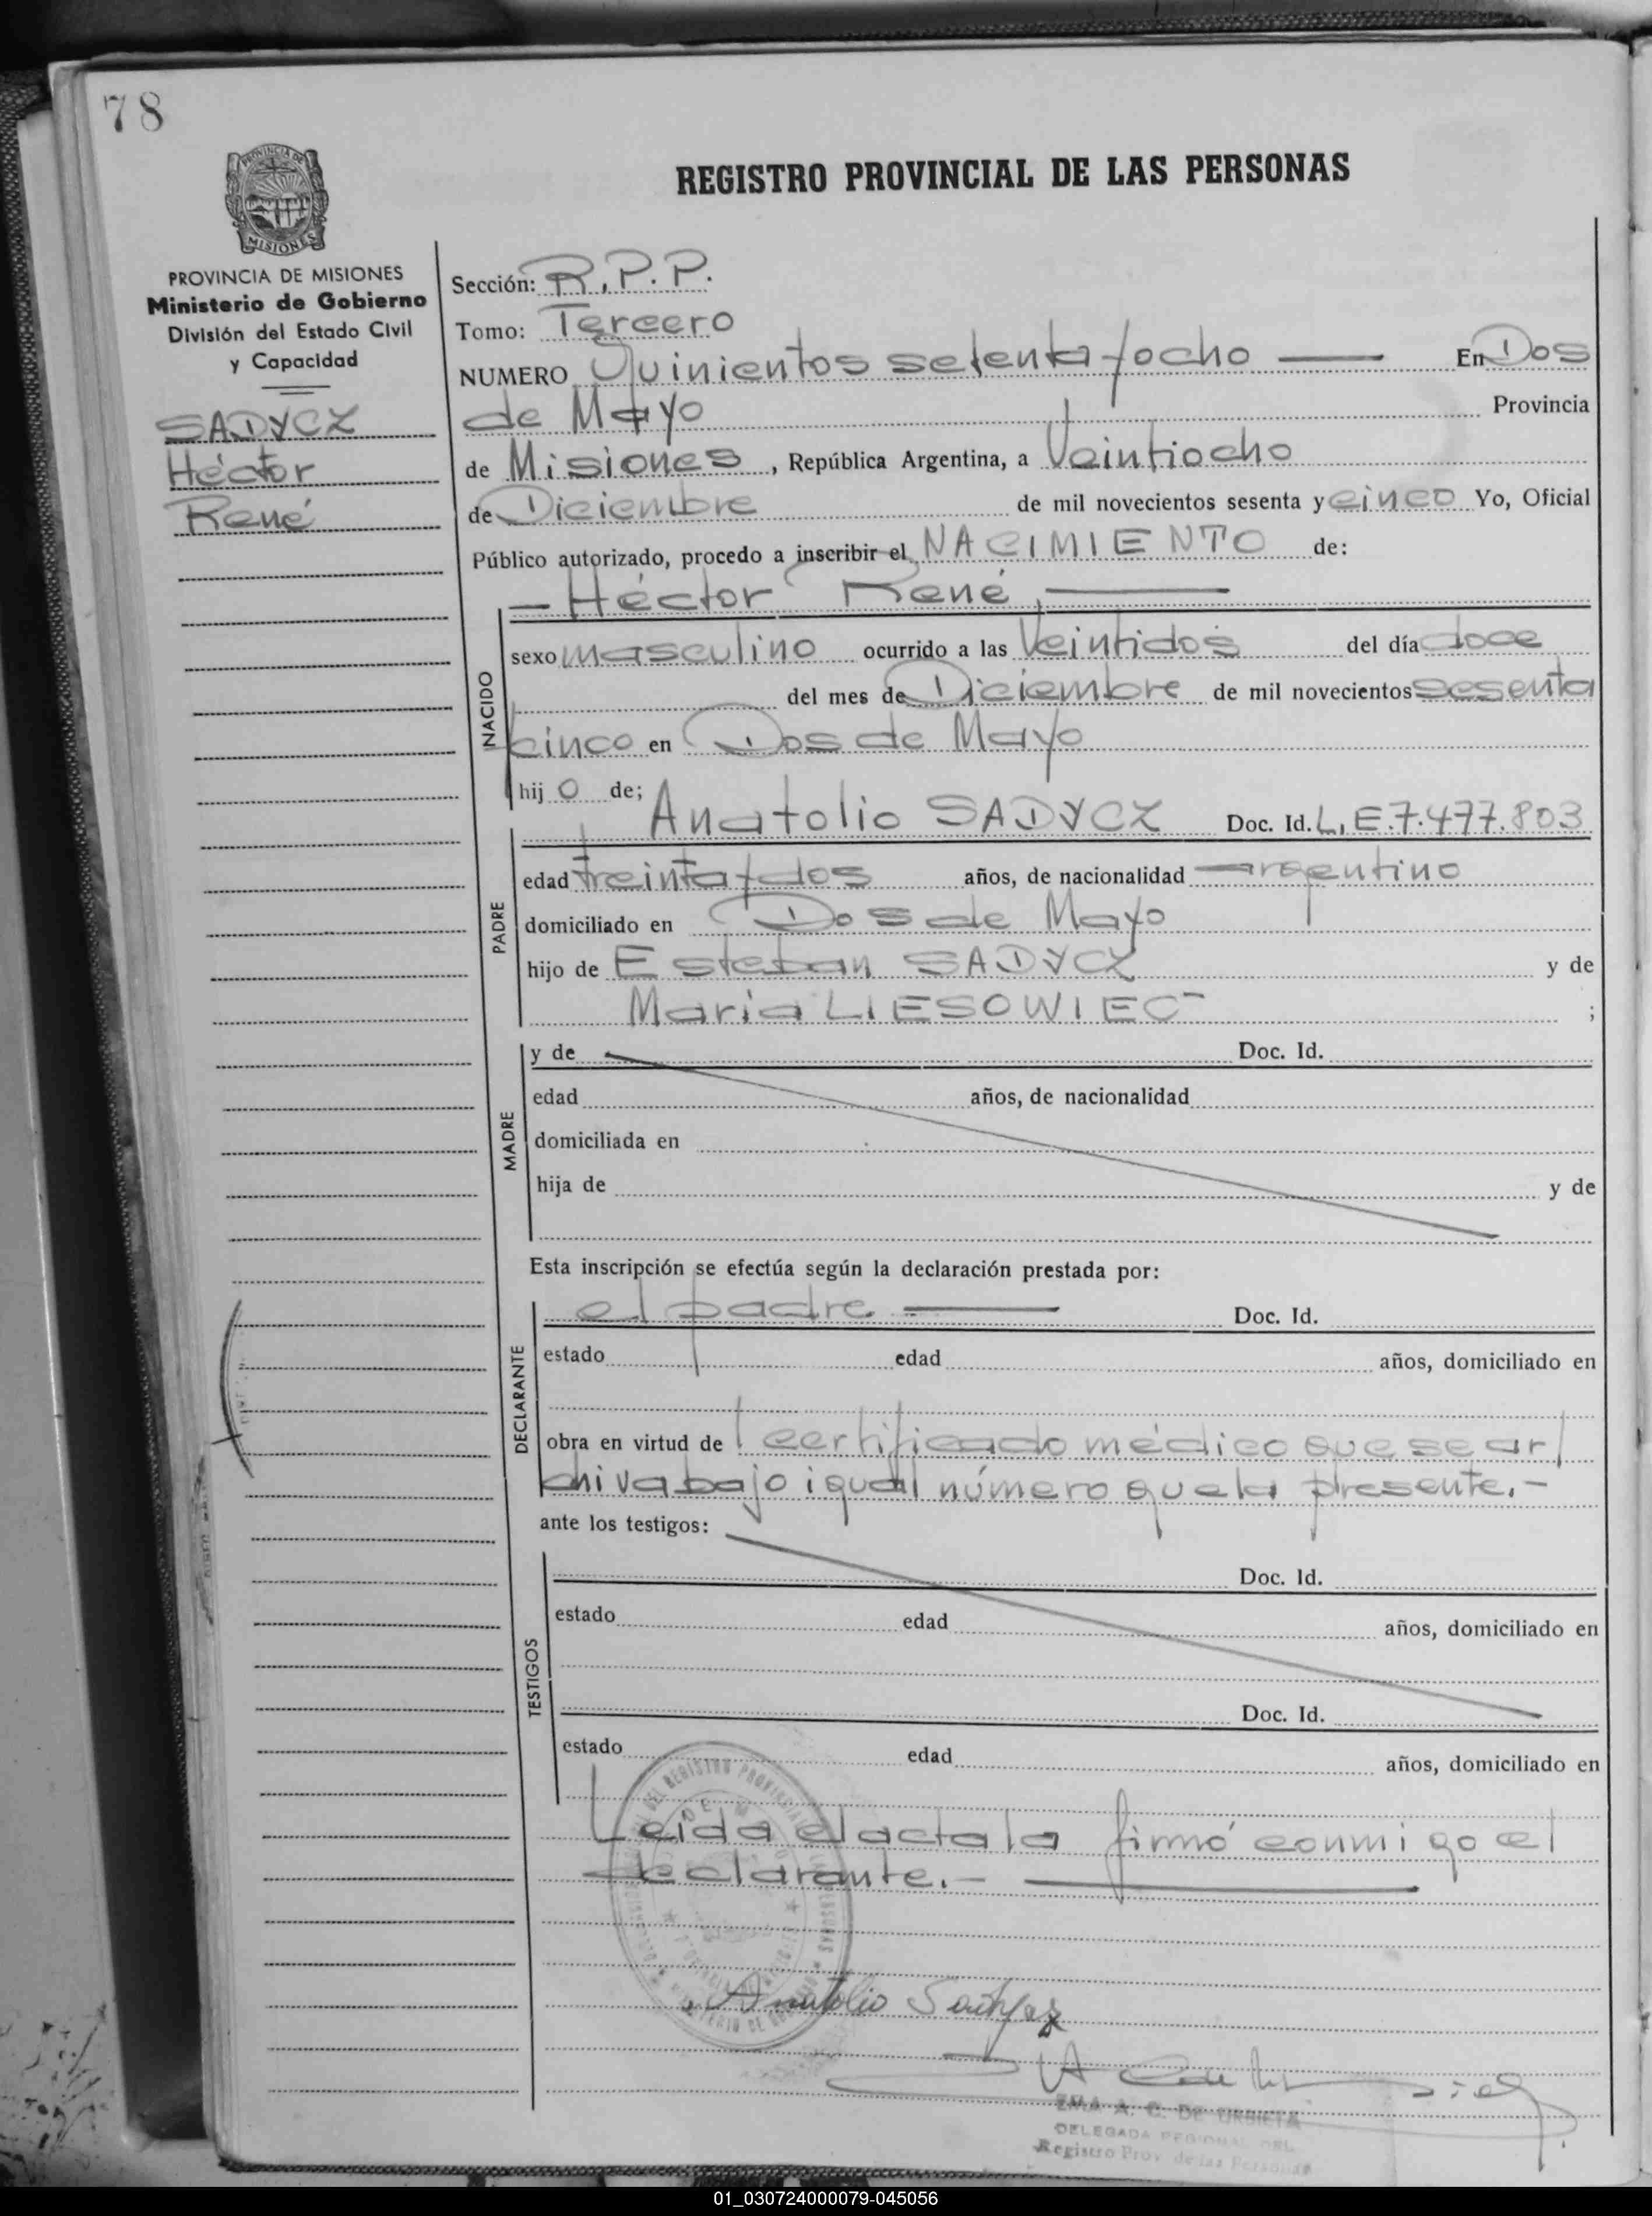 78
PROVINCIA DE
MISIONES
REGISTRO PROVINCIAL DE LAS PERSONAS
PROVINCIA DE MISIONES
Ministerio de Gobierno
División del Estado Civil
y Capacidad
SADYCZ
Héctor
René
Sección: R.P.P.
Tomo: Tercero
NUMERO Quinientos setenta y ocho — En Dos
de Mayo Provincia
de Misiones, República Argentina, a Veintiocho
de Diciembre de mil novecientos sesenta y cinco Yo, Oficial
Público autorizado, procedo a inscribir el NACIMIENTO de:
— Héctor René, —
NACIDO
sexo masculino ocurrido a las Veintidos del día doce
del mes de Diciembre de mil novecientos sesenta
cinco en Dos de Mayo
hij o de;
PADRE
Anatolio SADYCZ Doc. Id. L.E.7.477.803
edad treinta y dos años, de nacionalidad argentino
domiciliado en Dos de Mayo
hijo de Esteban SADYCZ y de
María LIESOWIEC- ;
MADRE
y de Doc. Id.
edad años, de nacionalidad
domiciliada en
hija de y de
Esta inscripción se efectúa según la declaración prestada por:
DECLARANTE
el padre — Doc. Id.
estado edad años, domiciliado en
obra en virtud de certificado médico que se ar/
chiva bajo igual número que la presente.-
ante los testigos:
TESTIGOS
Doc. Id.
estado edad años, domiciliado en
Doc. Id.
estado edad años, domiciliado en
Leída el acta la firmó conmigo el
declarante.- —
DEL REGISTRO PROVINCIAL
Anatolio
A. C. DE URBIETA
DELEGADA REGIONAL DEL
Registro Prov. de las Personas
01_030724000079-045056